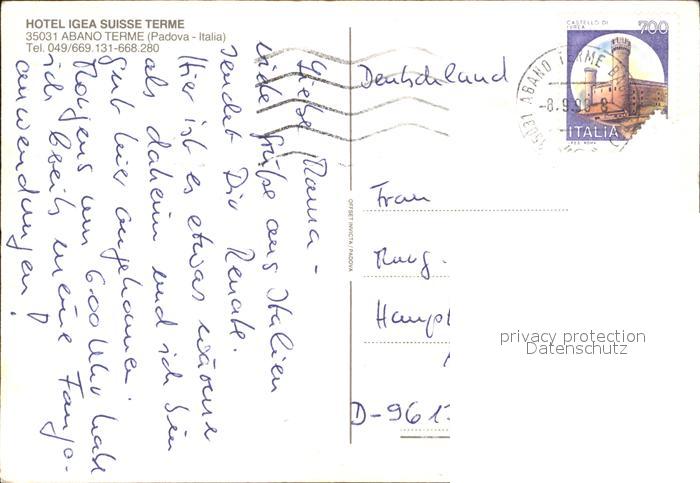 HOTEL IGEA SUISSE TERME
35031 ABANO TERME (Padova - Italia)
Tel. 049/669.131-668.280
Liebe Mama -
viele Grüße aus Italien
sendet Dir Renate.
Hier ist es etwas wärmer
als daheim und ich bin
gut hier angekommen.
Morgens um 6.00 Uhr habe
ich bereits meine Fango-
anwendungen!
OFFSET INVICTA / PADOVA
CASTELLO DI
IVREA
700
ITALIA
I.P.Z.S. ROMA
35031 ABANO TERME
-8.9.98-8
Deutschland
Frau
Haupt
D-961
privacy protection
Datenschutz